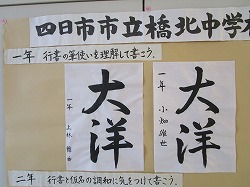 四日市市立橋北中学校
一年　行書の筆使いを理解して書こう。
大洋
一年　小畑雄世
大洋
一年　上林
二年　行書と仮名の調和に気をつけて書こう。